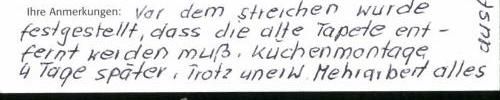 Ihre Anmerkungen: Vor dem streichen wurde
festgestellt, dass die alte Tapete ent-
fernt werden muß. Küchenmontage
4 Tage später. Trotz unerw. Mehrarbeit alles